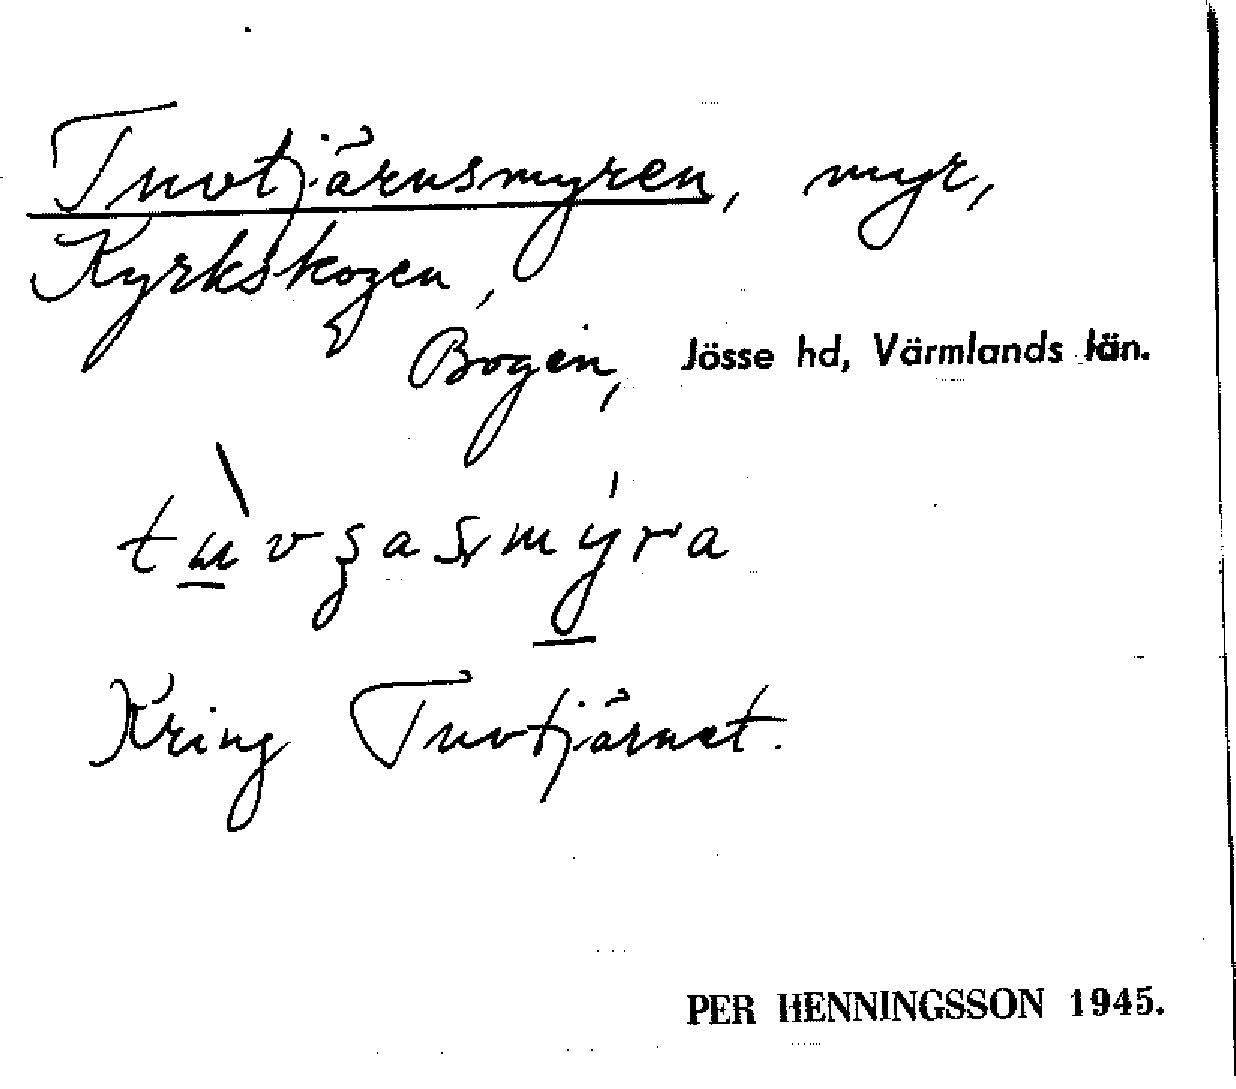 Tuvtjärnsmyren, myr,
Kyrkskogen,
Bogen, Jösse hd, Värmlands län.
Kring Tuvtjärnet.
PER HENNINGSSON 1945.